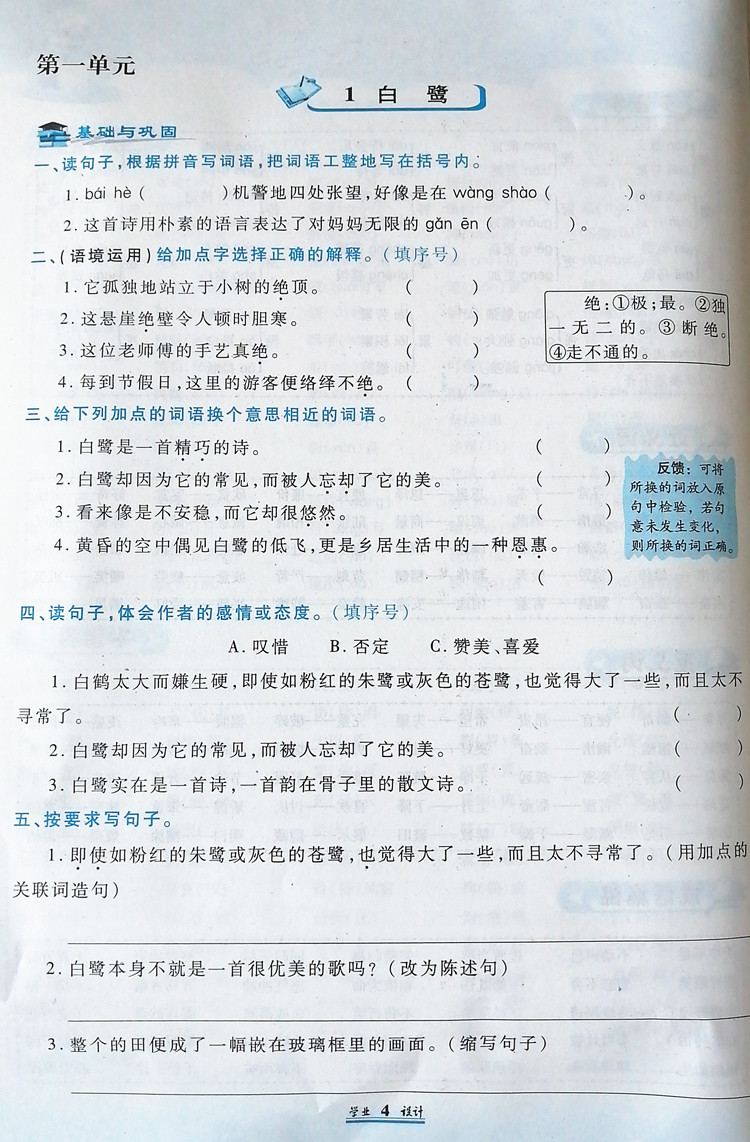 第一单元
1 白 鹭
基础与巩固
一、读句子,根据拼音写词语,把词语工整地写在括号内。
1. bái hè (          )机警地四处张望,好像是在 wàng shào (          )。
2. 这首诗用朴素的语言表达了对妈妈无限的 gǎn ēn (          )。
二、(语境运用)给加点字选择正确的解释。(填序号)
1. 它孤独地站立于小树的绝顶。 (      )
2. 这悬崖绝壁令人顿时胆寒。 (      )
3. 这位老师傅的手艺真绝。 (      )
4. 每到节假日,这里的游客便络绎不绝。 (      )
绝:①极;最。②独
一无二的。③断绝。
④走不通的。
三、给下列加点的词语换个意思相近的词语。
1. 白鹭是一首精巧的诗。 (      )
2. 白鹭却因为它的常见,而被人忘却了它的美。 (      )
3. 看来像是不安稳,而它却很悠然。 (      )
4. 黄昏的空中偶见白鹭的低飞,更是乡居生活中的一种恩惠。
(      )
反馈:可将
所换的词放入原
句中检验,若句
意未发生变化,
则所换的词正确。
四、读句子,体会作者的感情或态度。(填序号)
A. 叹惜 B. 否定 C. 赞美、喜爱
1. 白鹤太大而嫌生硬,即使如粉红的朱鹭或灰色的苍鹭,也觉得大了一些,而且太不
寻常了。 (      )
2. 白鹭却因为它的常见,而被人忘却了它的美。 (      )
3. 白鹭实在是一首诗,一首韵在骨子里的散文诗。 (      )
五、按要求写句子。
1. 即使如粉红的朱鹭或灰色的苍鹭,也觉得大了一些,而且太不寻常了。(用加点的
关联词造句)
2. 白鹭本身不就是一首很优美的歌吗?(改为陈述句)
3. 整个的田便成了一幅嵌在玻璃框里的画面。(缩写句子)
学业 4 设计